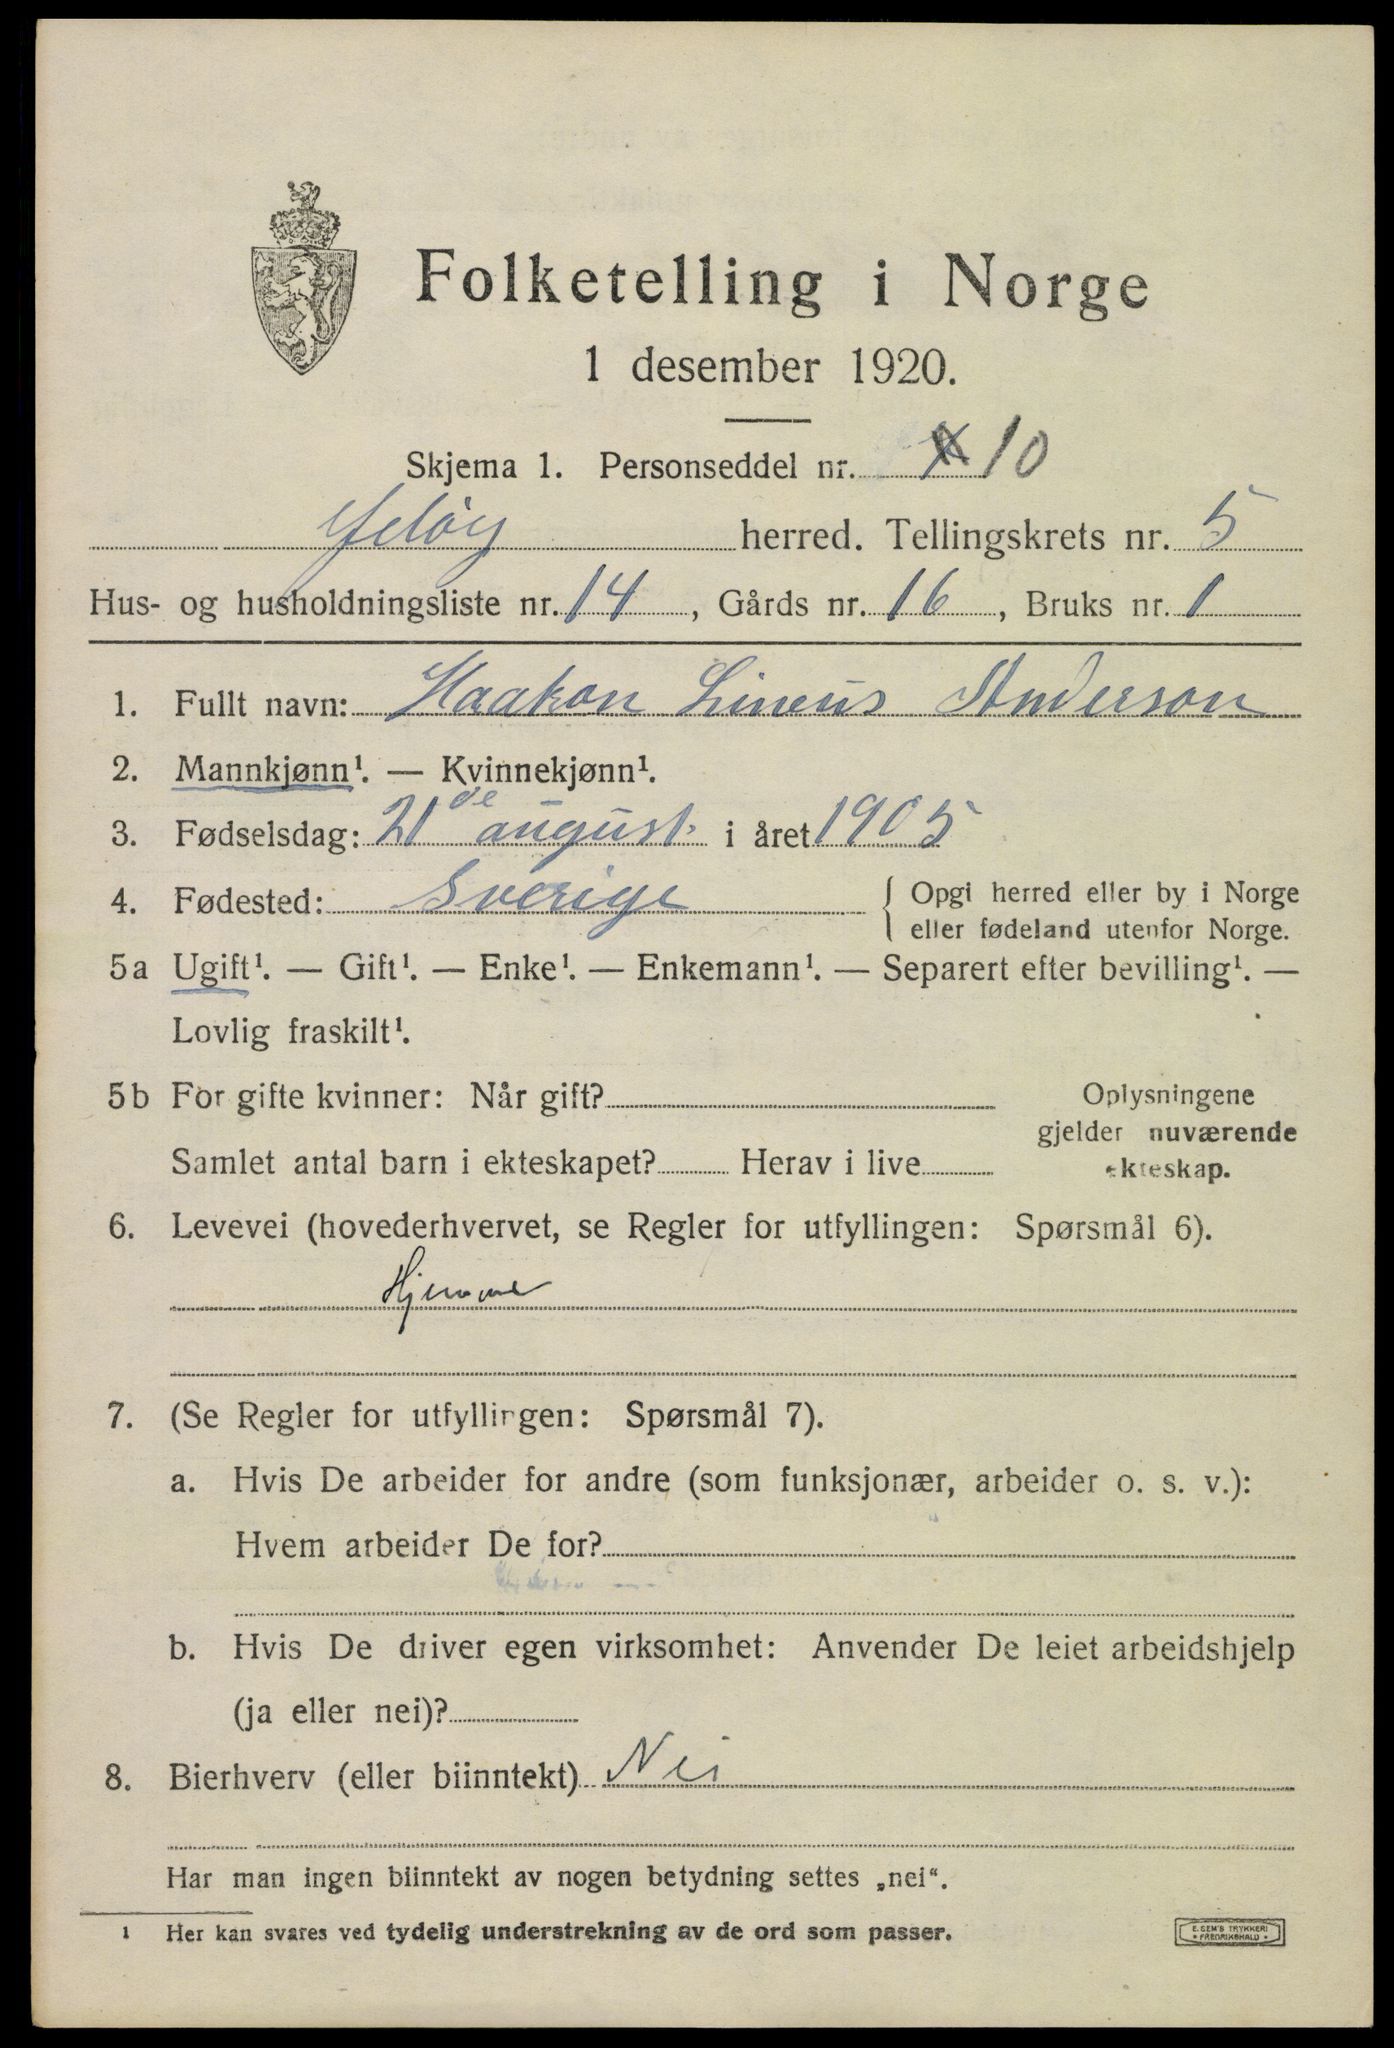 Folketelling i Norge
1 desember 1920.
Skjema 1. Personseddel nr. 10
herred. Tellingskrets nr. 5
Hus- og husholdningsliste nr. 14, Gårds nr. 16, Bruks nr. 1
1. Fullt navn: Haakon Lineus Anderson
2. Mannkjønn¹. — Kvinnekjønn¹.
3. Fødselsdag: 21de august i året 1905
4. Fødested: Sverige { Opgi herred eller by i Norge
eller fødeland utenfor Norge.
5a Ugift¹. — Gift¹. — Enke¹. — Enkemann¹. — Separert efter bevilling¹. —
Lovlig fraskilt¹.
5b For gifte kvinner: Når gift?
Samlet antal barn i ekteskapet? Herav i live
Oplysningene
gjelder nuværende
ekteskap.
6. Levevei (hovederhvervet, se Regler for utfyllingen: Spørsmål 6).
Hjemme
7. (Se Regler for utfyllingen: Spørsmål 7).
a. Hvis De arbeider for andre (som funksjonær, arbeider o. s. v.):
Hvem arbeider De for?
b. Hvis De driver egen virksomhet: Anvender De leiet arbeidshjelp
(ja eller nei)?
8. Bierhverv (eller biinntekt) Nei
Har man ingen biinntekt av nogen betydning settes „nei“.
¹ Her kan svares ved tydelig understrekning av de ord som passer.
E. SEM'S TRYKKERI
• FREDRIKSHALD •